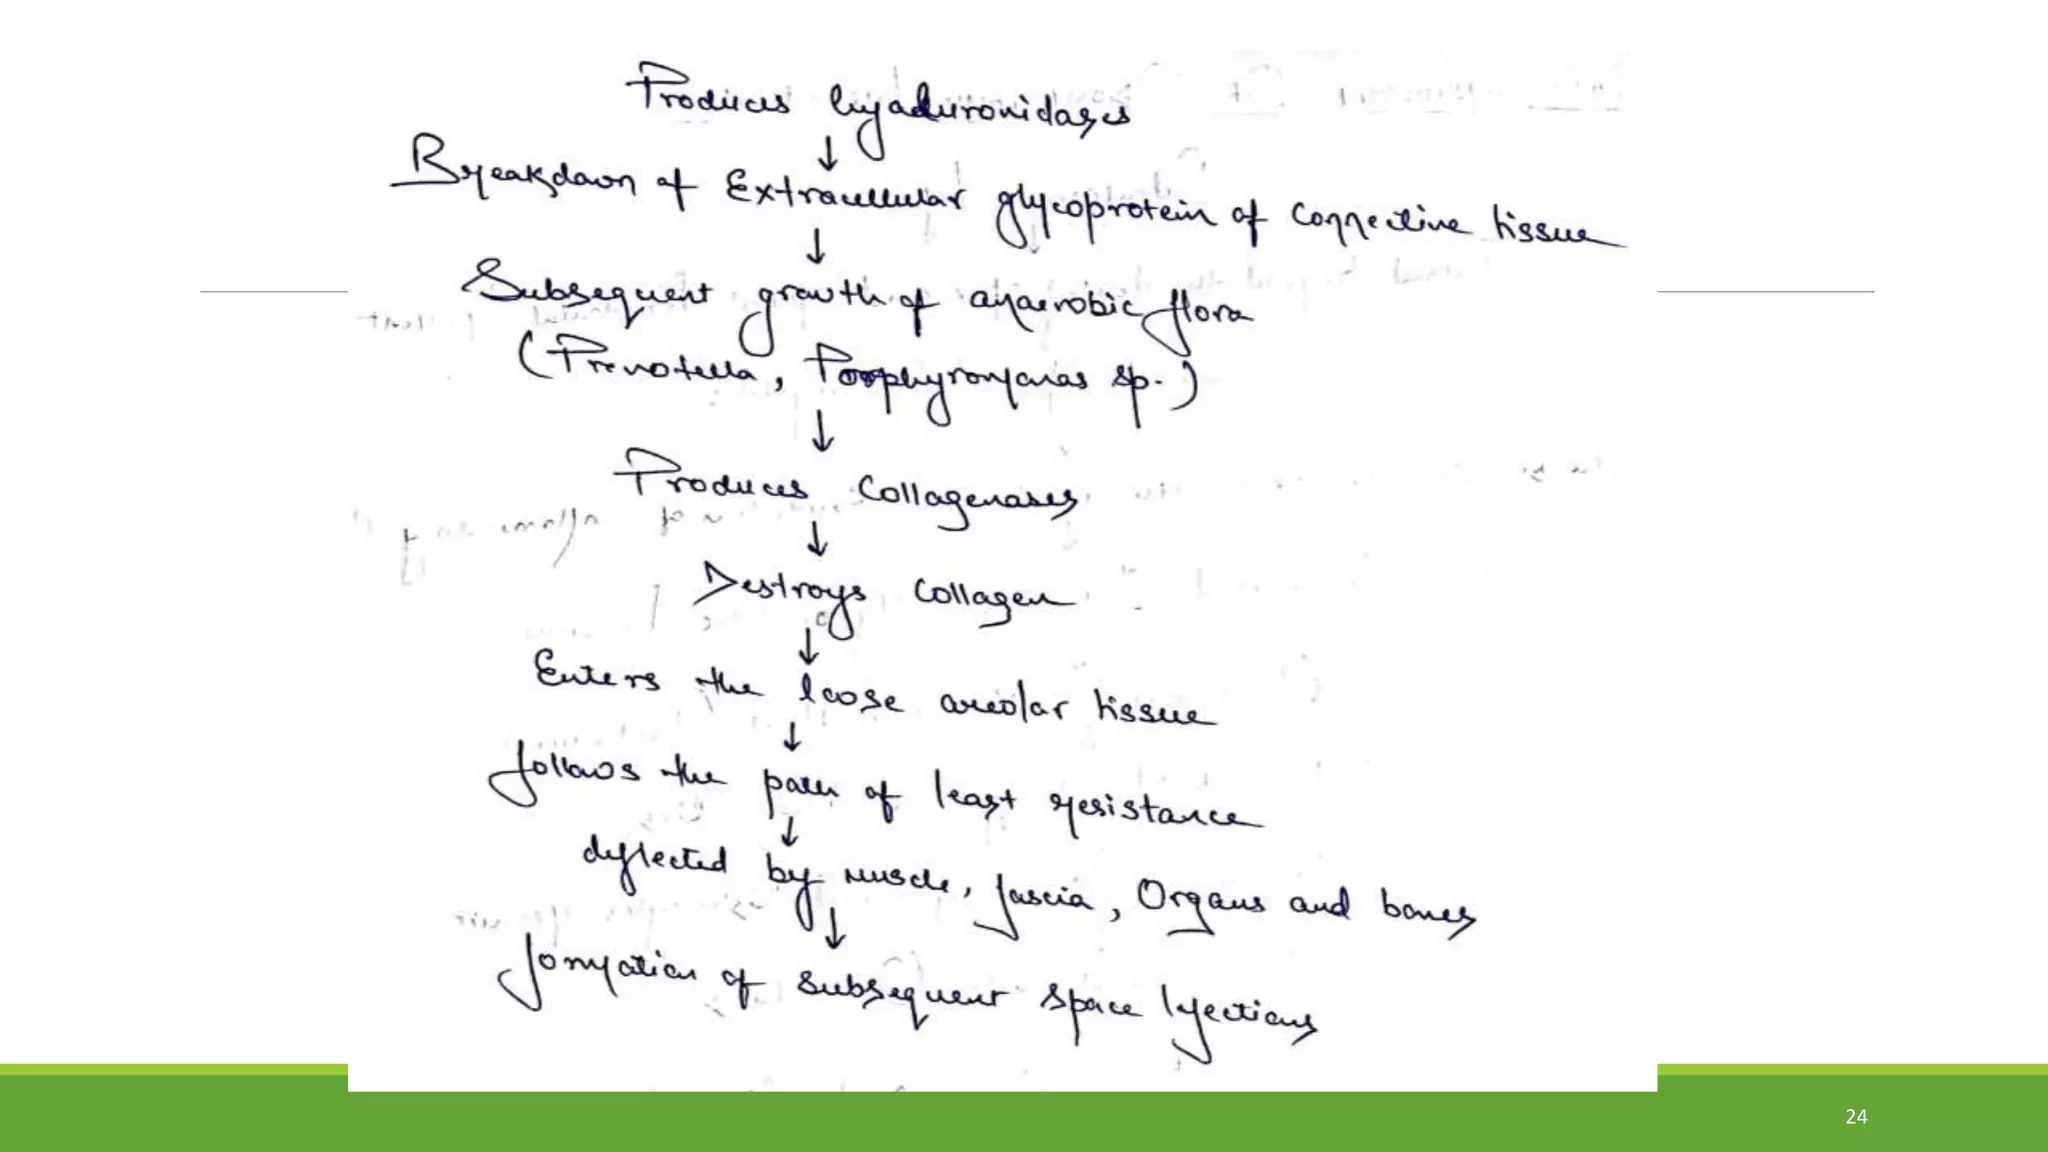 Produces hyaluronidases
↓
Breakdown of Extracellular glycoprotein of connective tissue
↓
Subsequent growth of anaerobic flora
(Prevotella, Porphyromonas sp.)
↓
Produces Collagenases
↓
Destroys Collagen
↓
Enters the loose areolar tissue
↓
follows the path of least resistance
↓
deflected by muscle, fascia, Organs and bones
↓
formation of subsequent space Infections
24